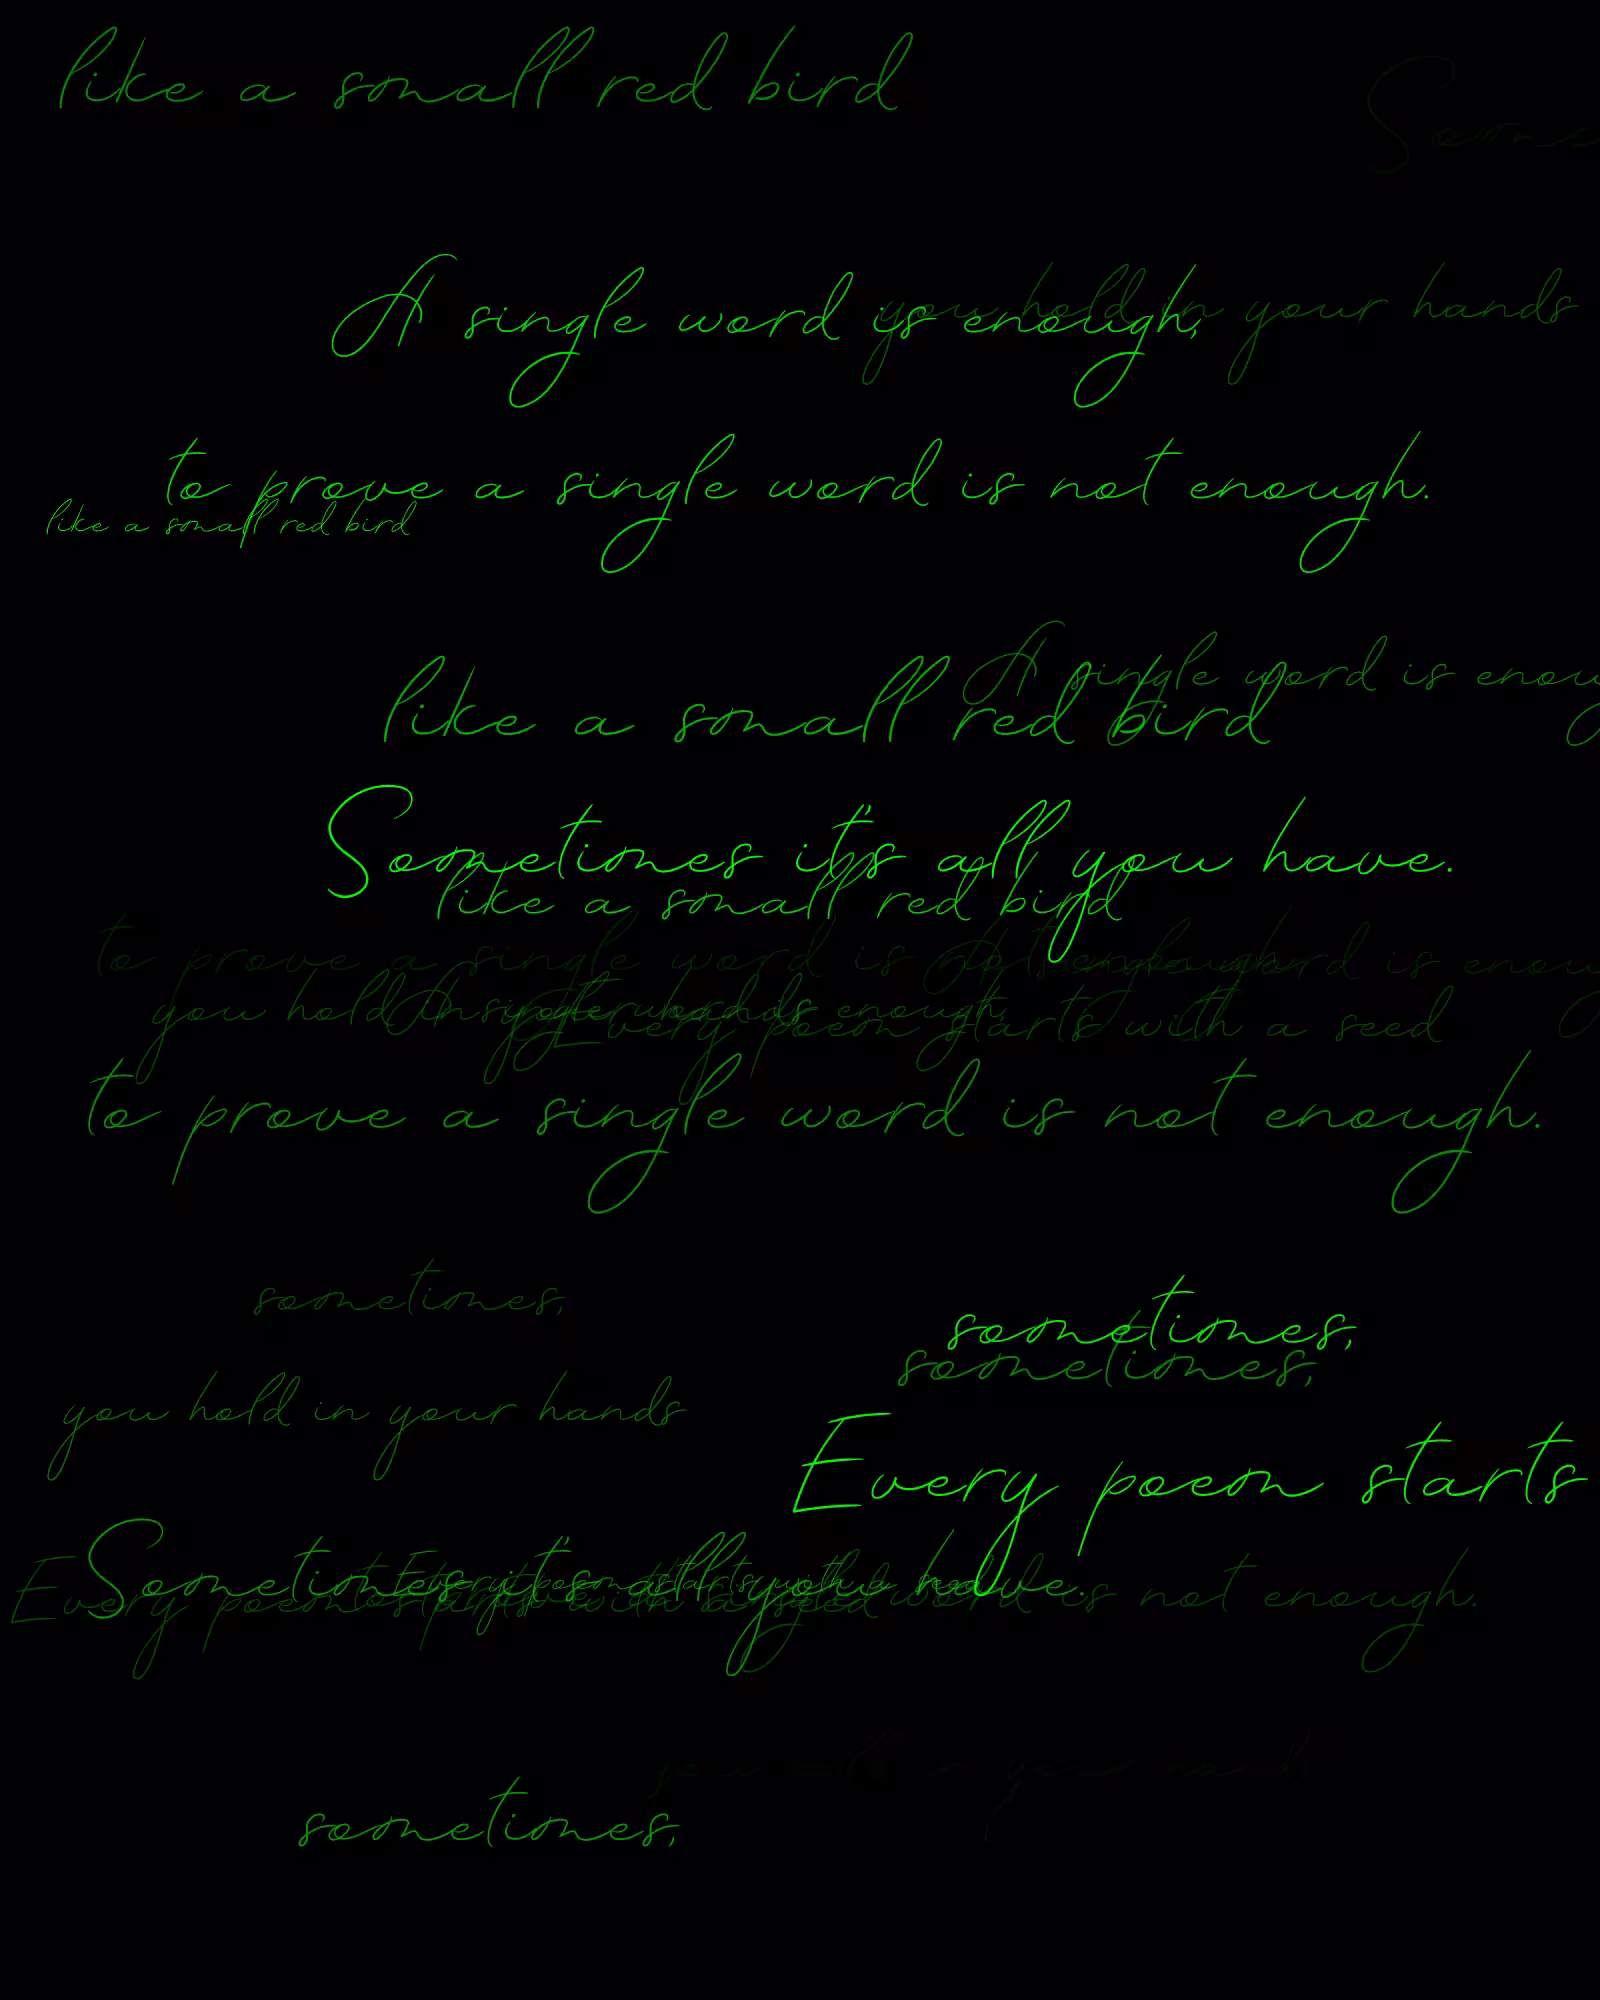 like a small red bird
you hold in your hands
A single word is enough,
to prove a single word is not enough.
like a small red bird
A single word is enou
like a small red bird
Sometimes it's all you have.
like a small red bird
to prove a single word is
word is enou
you hold in your hands
A single word is enough,
Every poem starts with a seed
to prove a single word is not enough.
sometimes,
sometimes,
sometimes,
you hold in your hands
Every poem starts
Sometimes it's all you have.
Every poem starts with a seed
Every poem starts with a seed
to prove a single word is not enough.
sometimes,